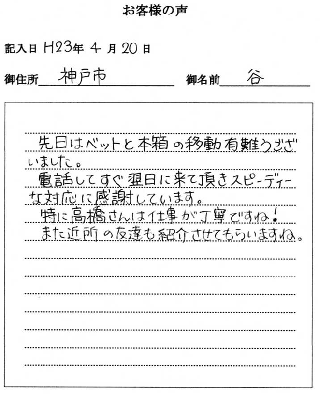 お客様の声
記入日 H23年 4月 20日
御住所 神戸市 御名前 谷
先日はベットと本箱の移動有難うござ
いました。
電話してすぐ翌日に来て頂きスピーディー
な対応に感謝しています。
特に高橋さんは仕事が丁寧ですね!
また近所の友達も紹介させてもらいますね。